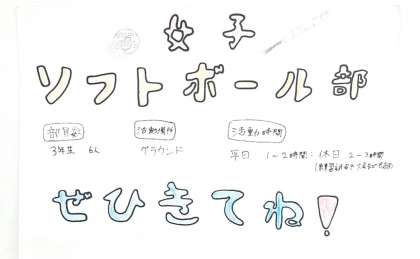 女子
ソフトボール部
部員数 活動場所 活動時間
3年生 6人 グラウンド 平日 1〜2時間：休日 2〜3時間
ぜひきてね！